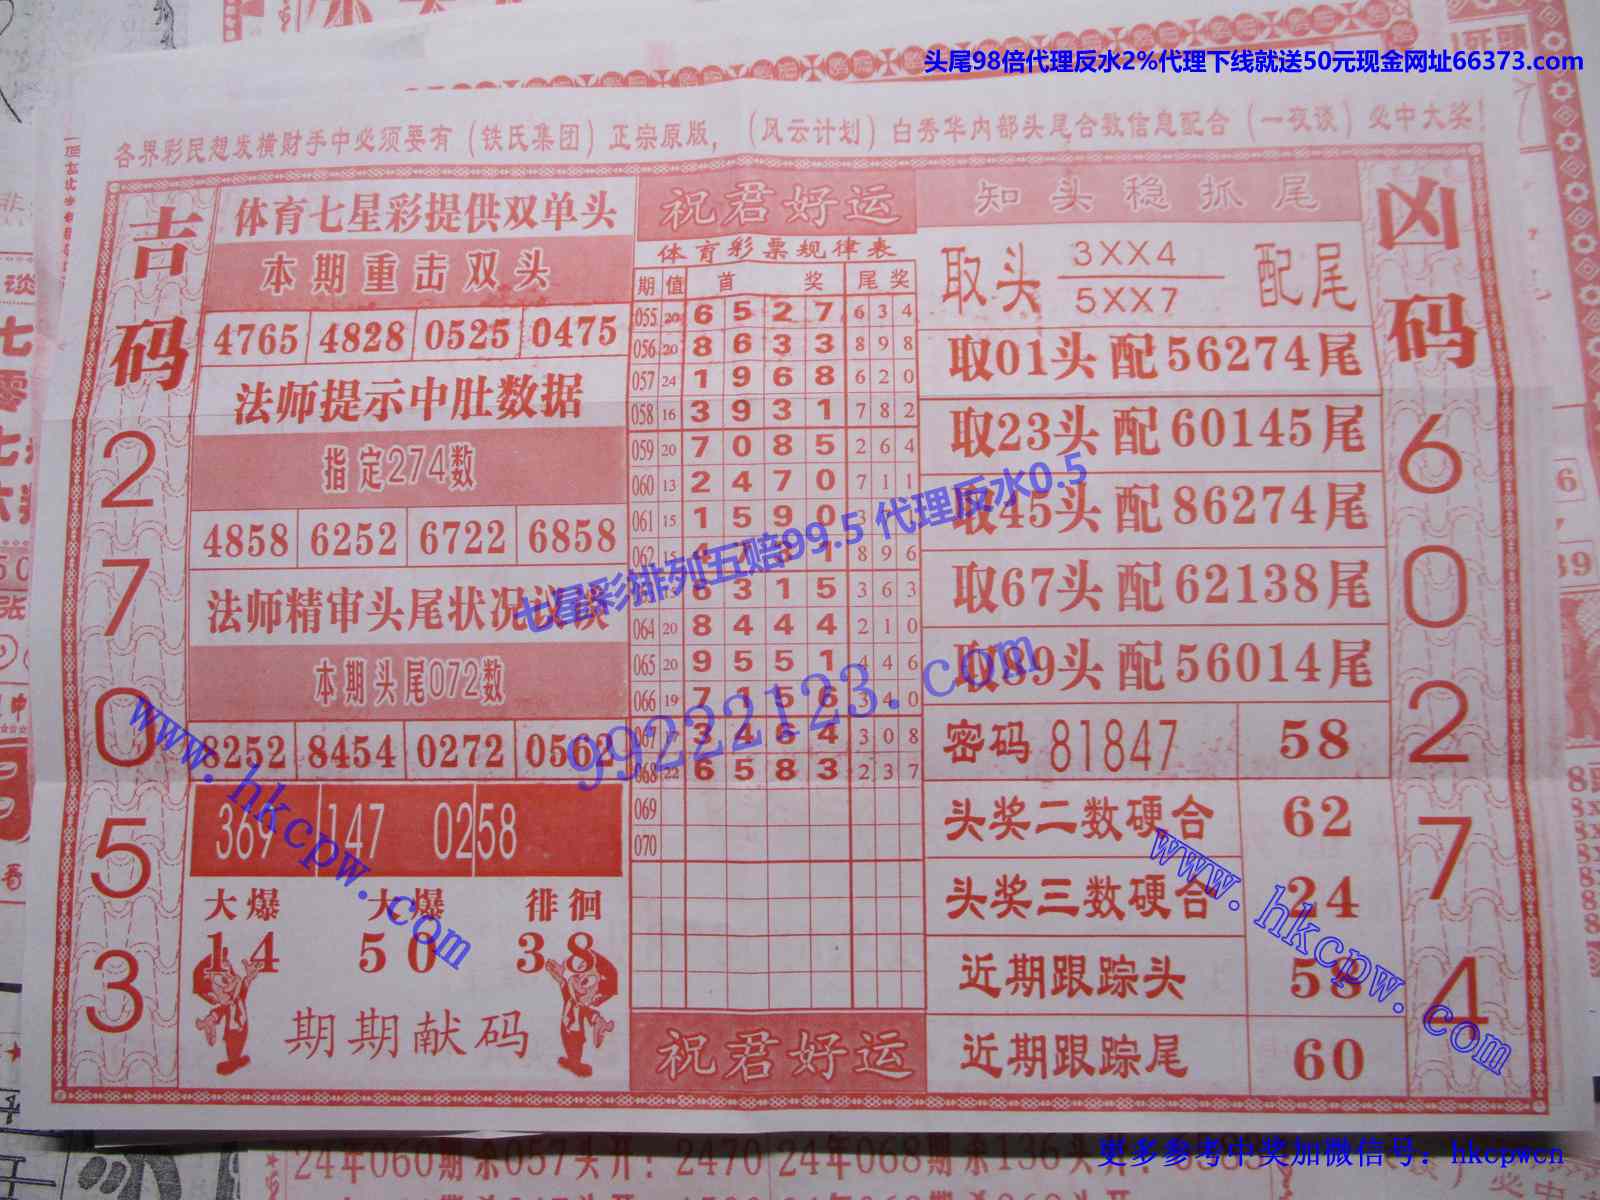 头尾98倍代理反水2%代理下线就送50元现金网址66373.com
各界彩民想发横财手中必须要有（铁氏集团）正宗原版，（风云计划）白秀华内部头尾合数信息配合（一夜谈）必中大奖！
吉码
2
7
0
5
3
体育七星彩提供双单头
本期重击双头
4765 4828 0525 0475
法师提示中肚数据
指定274数
4858 6252 6722 6858
法师精审头尾状况议谈
本期头尾072数
8252 8454 0272 0562
369 147 0258
大爆 大爆 徘徊
14 50 38
期期献码
祝君好运
体育彩票规律表
期 值 首 奖 尾 奖
055 20 6 5 2 7 6 3 4
056 20 8 6 3 3 8 9 8
057 24 1 9 6 8 6 2 0
058 16 3 9 3 1 7 8 2
059 20 7 0 8 5 2 6 4
060 13 2 4 7 0 7 1 1
061 15 1 5 9 0 3
062 15 1 8 9 6
6 3 1 5 3 6 3
064 20 8 4 4 4 2 1 0
065 20 9 5 5 1 4 4 6
066 19 7 1 5 6 3 4 0
067 17 3 4 6 4 3 0 8
068 22 6 5 8 3 2 3 7
069
070
祝君好运
知头稳抓尾
取头 3XX4 配尾
5XX7
取01头 配56274尾
取23头 配60145尾
取45头 配86274尾
取67头 配62138尾
取89头 配56014尾
密码 81847 58
头奖二数硬合 62
头奖三数硬合 24
近期跟踪头 58
近期跟踪尾 60
凶码
6
0
2
7
4
七星彩排列五赔99.5 代理反水0.5
99222123.com
www.hkcpw.com
www.hkcpw.com
24年060期杀057头开：2470 24年068期杀136头
更多参考中奖加微信号：hkcpwcn